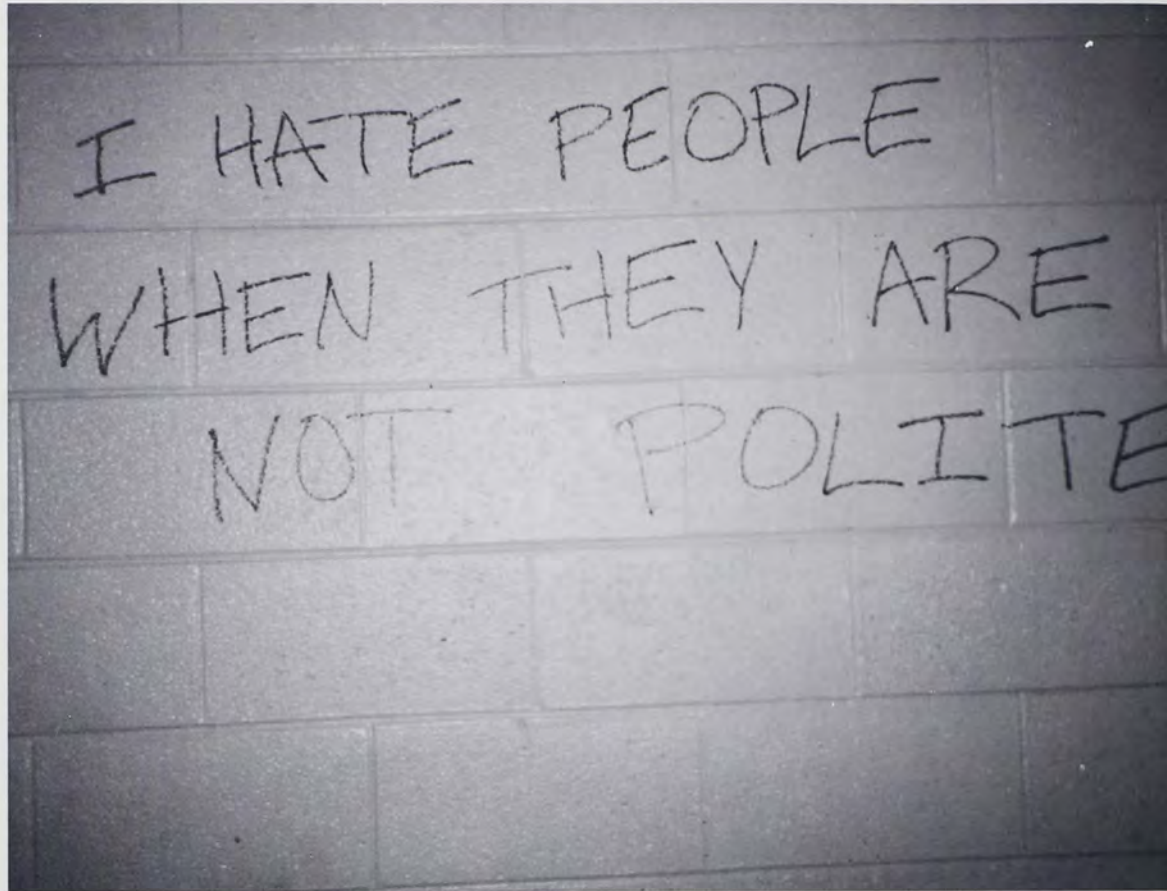 I HATE PEOPLE
WHEN THEY ARE
NOT POLITE